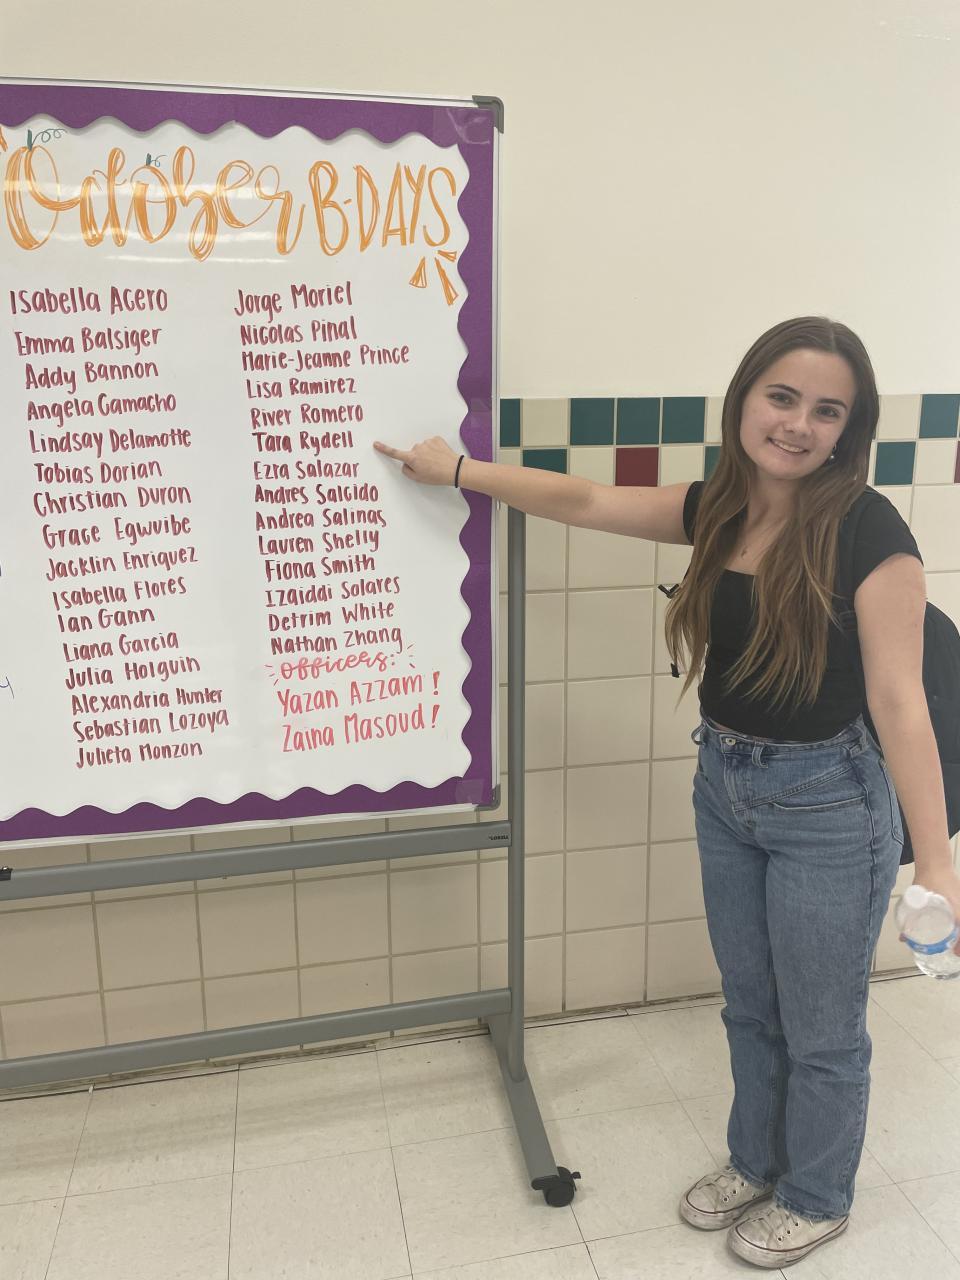 October B-DAYS
Isabella Acero
Emma Balsiger
Addy Bannon
Angela Camacho
Lindsay Delamotte
Tobias Dorian
Christian Duron
Grace Egwuibe
Jacklin Enriquez
Isabella Flores
Ian Gann
Liana Garcia
Julia Holguin
Alexandria Hunter
Sebastian Lozoya
Julieta Monzon
Jorge Moriel
Nicolas Pinal
Marie-Jeanne Prince
Lisa Ramirez
River Romero
Tara Rydell
Ezra Salazar
Andres Salcido
Andrea Salinas
Lauren Shelly
Fiona Smith
Izaiddi Solares
Detrim White
Nathan Zhang
officers:
Yazan Azzam!
Zaina Masoud!